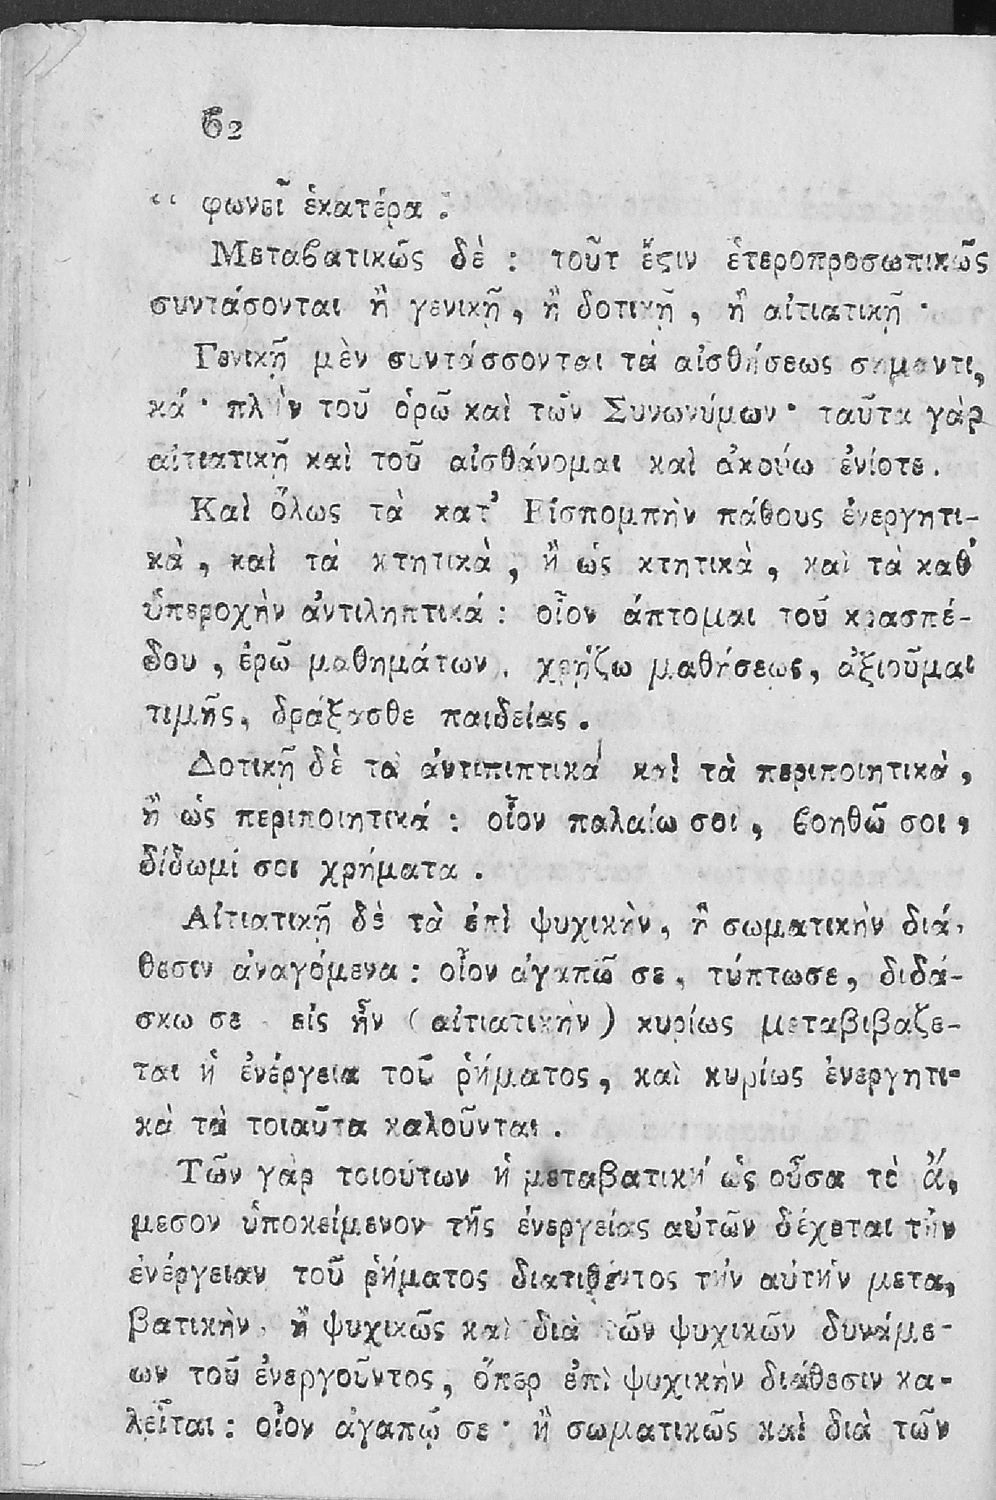 62
“ φωνεῖ ἑκατέρα.
Μεταϐατικῶς δὲ : τοῦτ ἔϛιν ἑτεροπροσωπικῶς
συντάσονται ἢ γενικῇ, ἢ δοτικῇ, ἢ αἰτιατικῇ ·
Γενικῇ μὲν συντάσσονται τὰ αἰσθήσεως σημαντι,
κά · πλὴν τοῦ ὁρῶ καὶ τῶν Συνωνύμων · ταῦτα γὰρ
αἰτιατικῇ καὶ τοῦ αἰσθάνομαι καὶ ἀκούω ἐνίοτε.
Καὶ ὅλως τὰ κατ’ Εἰσπομπὴν πάθους ἐνεργητι-
κὰ, καὶ τὰ κτητικὰ, ἢ ὡς κτητικὰ, καὶ τὰ καθ’
ὑπεροχὴν ἀντιληπτικά : οἷον ἅπτομαι τοῦ κρασπέ-
δου, ἐρῶ μαθημάτων, χρῄζω μαθήσεως, ἀξιοῦμαι
τιμῆς, δράξασθε παιδείας.
Δοτικῇ δὲ τὰ ἀντιπιπτικά καὶ τὰ περιποιητικὰ,
ἢ ὡς περιποιητικά : οἷον παλαίω σοι, ϐοηθῶ σοι,
δίδωμί σοι χρήματα.
Αἰτιατικῇ δὲ τὰ ἐπὶ ψυχικὴν, ἢ σωματικὴν διά-
θεσιν ἀναγόμενα : οἷον ἀγαπῶ σε, τύπτωσε, διδά-
σκω σε εἰς ἣν (αἰτιατικὴν) κυρίως μεταβιβαζε-
ται ἡ ἐνέργεια τοῦ ῥήματος, καὶ κυρίως ἐνεργητι-
κὰ τὰ τοιαῦτα καλοῦνται.
Τῶν γὰρ τοιούτων ἡ μεταβατικὴ ὡς οὖσα τὸ ἄ,
μεσον ὑποκείμενον τῆς ἐνεργείας αὐτῶν δέχεται τὴν
ἐνέργειαν τοῦ ῥήματος διατιθέντος τὴν αὐτὴν μετα,
βατικὴν, ἢ ψυχικῶς καὶ διὰ τῶν ψυχικῶν δυνάμε-
ων τοῦ ἐνεργοῦντος, ὅπερ ἐπὶ ψυχικὴν διάθεσιν κα-
λεῖται : οἷον ἀγαπῶ σε · ἢ σωματικῶς καὶ διὰ τῶν